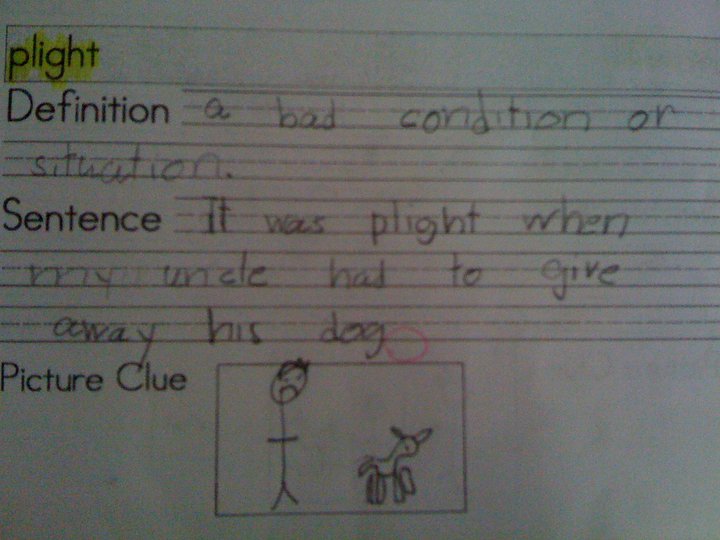 plight
Definition a bad condition or
situation.
Sentence It was plight when
my uncle had to give
away his dog
Picture Clue